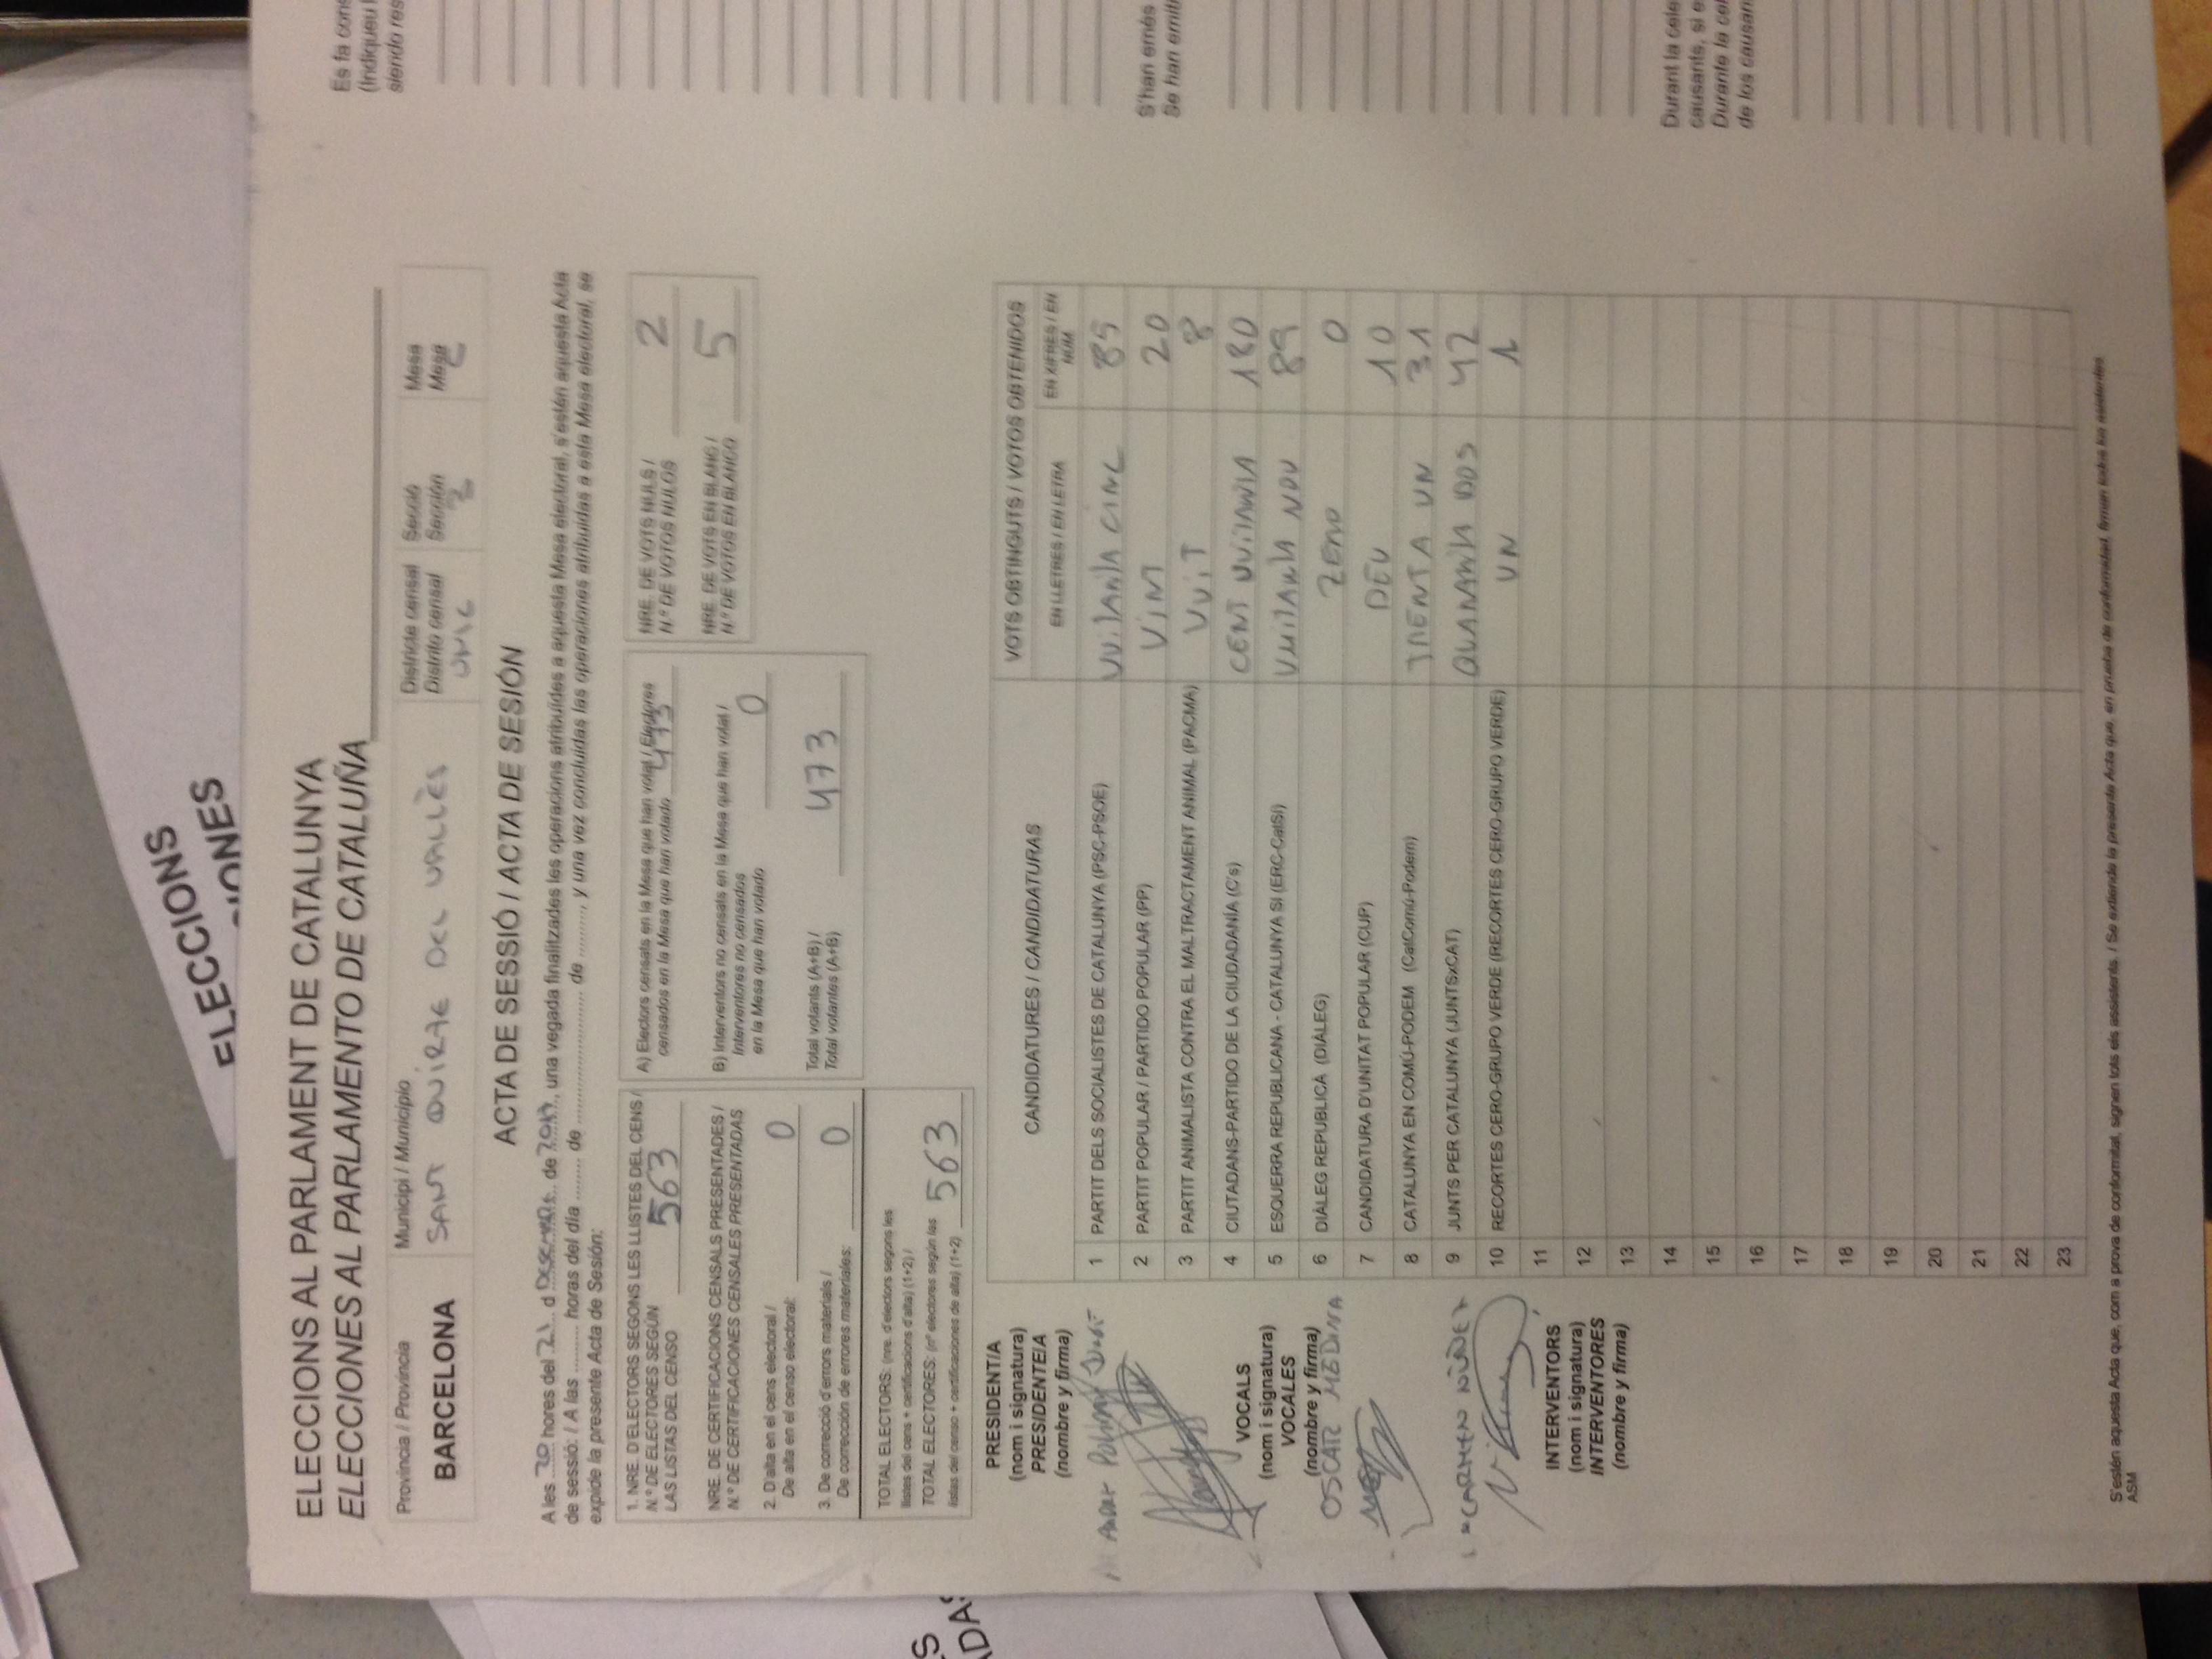 ELECCIONS
IONES
ELECCIONS AL PARLAMENT DE CATALUNYA
ELECCIONES AL PARLAMENTO DE CATALUÑA
Provincia / Provincia
BARCELONA
Municipi / Municipio
SANT QUIRZE DEL VALLÈS
Districte censal
Distrito censal
UNIC
Secció
Sección
Mesa
Mesa
C
ACTA DE SESSIÓ / ACTA DE SESIÓN
A les 20 hores del 21 d DESEMBRE de 2017, una vegada finalitzades les operacions atribuïdes a aquesta Mesa electoral, s'estén aquesta Acta
de sessió: / A las ......... horas del día ........ de ........................ de ........., y una vez concluidas las operaciones atribuidas a esta Mesa electoral, se
expide la presente Acta de Sesión:
1. NRE. D'ELECTORS SEGONS LES LLISTES DEL CENS /
N.º DE ELECTORES SEGÚN
LAS LISTAS DEL CENSO 563
NRE. DE CERTIFICACIONS CENSALS PRESENTADES /
N.º DE CERTIFICACIONES CENSALES PRESENTADAS
2. D'alta en el cens electoral /
De alta en el censo electoral: 0
3. De correcció d'errors materials /
De corrección de errores materiales: 0
TOTAL ELECTORS: (nre. d'electors segons les
llistes del cens + certificacions d'alta) (1+2) /
TOTAL ELECTORES: (nº electores según las
listas del censo + certificaciones de alta) (1+2) 563
A) Electors censats en la Mesa que han votat / Electores
censados en la Mesa que han votado 473
B) Interventors no censats en la Mesa que han votat /
Interventores no censados
en la Mesa que han votado 0
Total votants (A+B) /
Total votantes (A+B) 473
NRE. DE VOTS NULS /
N.º DE VOTOS NULOS 2
NRE. DE VOTS EN BLANC /
N.º DE VOTOS EN BLANCO 5
PRESIDENT/A
(nom i signatura)
PRESIDENTE/A
(nombre y firma)
VOCALS
(nom i signatura)
VOCALES
(nombre y firma)
OSCAR MEDINA
CARMEN NÚÑEZ
INTERVENTORS
(nom i signatura)
INTERVENTORES
(nombre y firma)
CANDIDATURES / CANDIDATURAS
VOTS OBTINGUTS / VOTOS OBTENIDOS
EN LLETRES / EN LETRA
EN XIFRES / EN
NÚM.
1 PARTIT DELS SOCIALISTES DE CATALUNYA (PSC-PSOE) VUITANTA CINC 85
2 PARTIT POPULAR / PARTIDO POPULAR (PP) VINT 20
3 PARTIT ANIMALISTA CONTRA EL MALTRACTAMENT ANIMAL (PACMA) VUIT 8
4 CIUTADANS-PARTIDO DE LA CIUDADANÍA (C's) CENT VUITANTA 180
5 ESQUERRA REPUBLICANA - CATALUNYA SÍ (ERC-CatSí) VUITANTA NOU 89
6 DIÀLEG REPUBLICÀ (DIÀLEG) ZERO 0
7 CANDIDATURA D'UNITAT POPULAR (CUP) DEU 10
8 CATALUNYA EN COMÚ-PODEM (CatComú-Podem) TRENTA UN 31
9 JUNTS PER CATALUNYA (JUNTSxCAT) QUARANTA DOS 42
10 RECORTES CERO-GRUPO VERDE (RECORTES CERO-GRUPO VERDE) UN 1
11
12
13
14
15
16
17
18
19
20
21
22
23
S'estén aquesta Acta que, com a prova de conformitat, signen tots els assistents. / Se extiende la presente Acta que, en prueba de conformidad, firman todos los asistentes.
ASM
Es fa cons
(Indiqueu l
siendo res
S'han emès
Se han emiti
Durant la cele
causants, si e
Durante la cel
de los causan